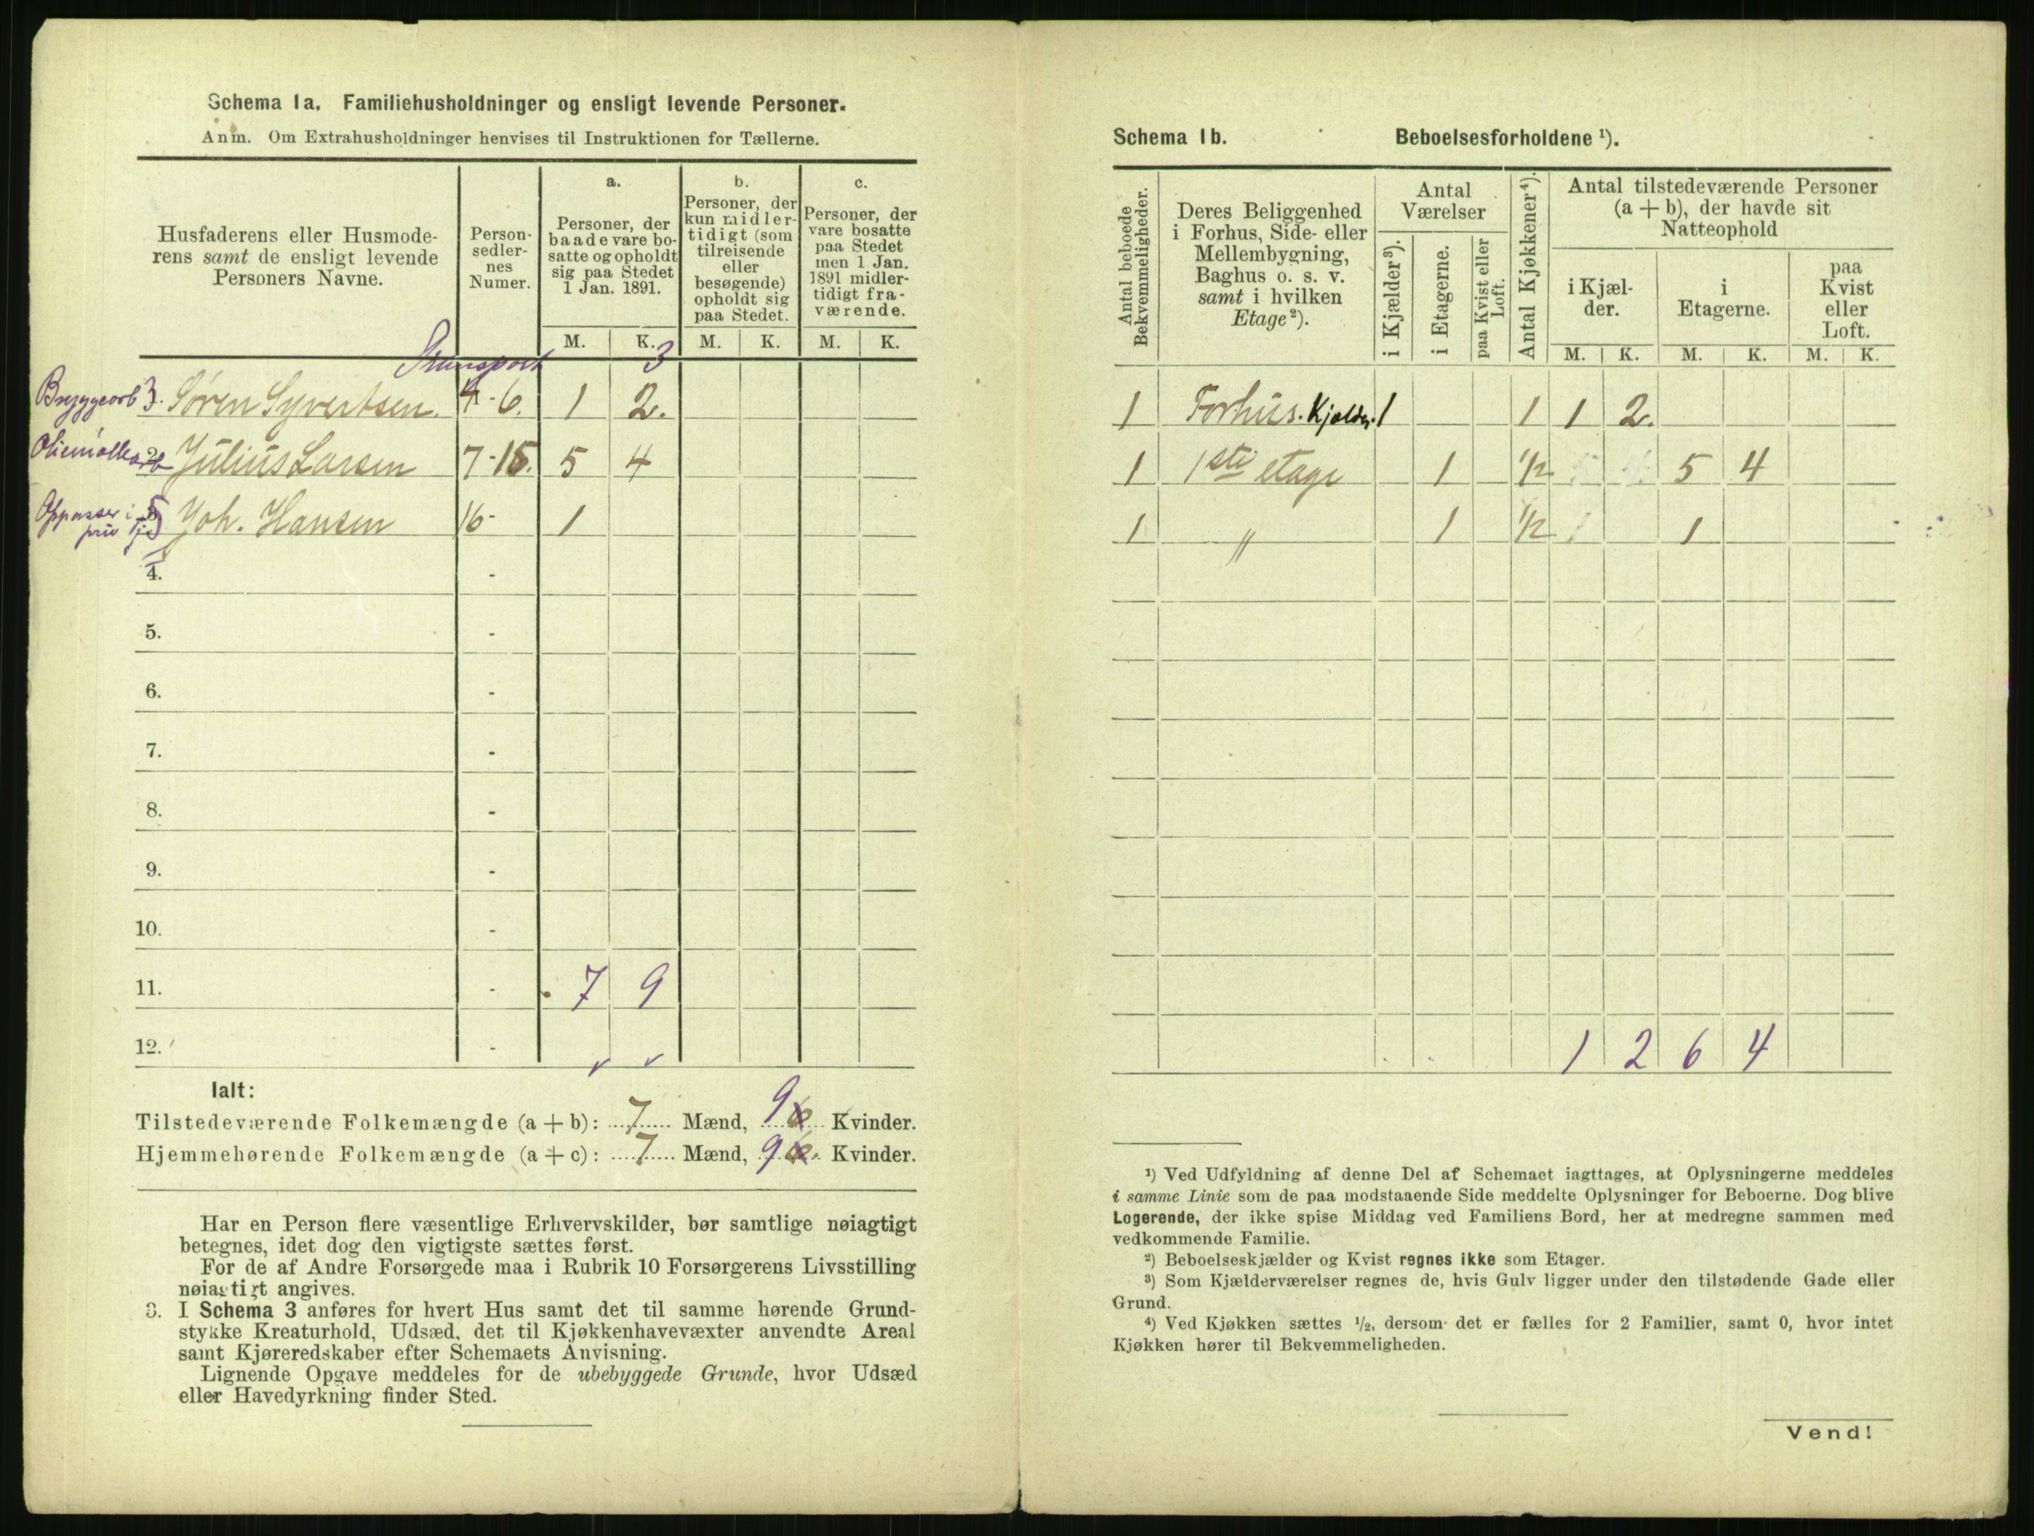 Schema 1a. Familiehusholdninger og ensligt levende Personer.
Anm. Om Extrahusholdninger henvises til Instruktionen for Tællerne.
Husfaderens eller Husmoderens samt de ensligt levende Personers Navne.
Person-sedlernes Numer.
a.
Personer, der baade vare bosatte og opholdt sig paa Stedet 1 Jan. 1891.
b.
Personer, der kun midlertidigt (som tilreisende eller besøgende) opholdt sig paa Stedet.
c.
Personer, der vare bosatte paa Stedet men 1 Jan. 1891 midlertidigt fraværende.
M. K. M. K. M. K.
Transport 3
Bryggearb 3. Søren Syvertsen 4-6. 1 2.
Oliemøllearb 2 Julius Larsen 7-15. 5 4
Oppasser i priv Joh. Hansen 16- 1
4. -
5. -
6. -
7. -
8. -
9. -
10. -
11. - 7 9
12. -
Ialt:
Tilstedeværende Folkemængde (a + b): 7 Mænd, 9 6 Kvinder.
Hjemmehørende Folkemængde (a + c): 7 Mænd, 9 6. Kvinder.
Har en Person flere væsentlige Erhvervskilder, bør samtlige nøiagtigt
betegnes, idet dog den vigtigste sættes først.
For de af Andre Forsørgede maa i Rubrik 10 Forsørgerens Livsstilling
nøiagtigt angives.
3. I Schema 3 anføres for hvert Hus samt det til samme hørende Grund-
stykke Kreaturhold, Udsæd, det til Kjøkkenhavevæxter anvendte Areal
samt Kjøreredskaber efter Schemaets Anvisning.
Lignende Opgave meddeles for de ubebyggede Grunde, hvor Udsæd
eller Havedyrkning finder Sted.
Schema 1b. Beboelsesforholdene ¹).
Antal beboede Bekvemmeligheder.
Deres Beliggenhed i Forhus, Side- eller Mellembygning, Baghus o. s. v. samt i hvilken Etage²).
Antal Værelser
i Kjælder³).
i Etagerne.
paa Kvist eller Loft.
Antal Kjøkkener⁴).
Antal tilstedeværende Personer (a + b), der havde sit Natteophold
i Kjælder.
i Etagerne.
paa Kvist eller Loft.
M. K. M. K. M. K.
1 Forhus. Kjelder. 1 1 1 2.
1 1ste etage 1 1/2 5 4
1 " 1 1/2 1
1 2 6 4
¹) Ved Udfyldning af denne Del af Schemaet iagttages, at Oplysningerne meddeles
i samme Linie som de paa modstaaende Side meddelte Oplysninger for Beboerne. Dog blive
Logerende, der ikke spise Middag ved Familiens Bord, her at medregne sammen med
vedkommende Familie.
²) Beboelseskjælder og Kvist regnes ikke som Etager.
³) Som Kjælderværelser regnes de, hvis Gulv ligger under den tilstødende Gade eller
Grund.
⁴) Ved Kjøkken sættes ½, dersom det er fælles for 2 Familier, samt 0, hvor intet
Kjøkken hører til Bekvemmeligheden.
Vend!